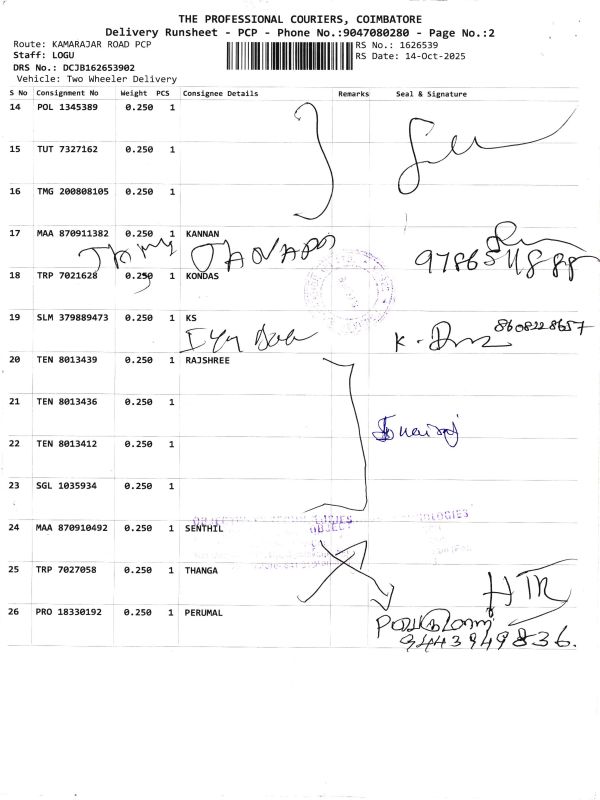 THE PROFESSIONAL COURIERS, COIMBATORE
Delivery Runsheet - PCP - Phone No.:9047080280 - Page No.:2
Route: KAMARAJAR ROAD PCP
RS No.: 1626539
Staff: LOGU
RS Date: 14-Oct-2025
DRS No.: DCJB162653902
Vehicle: Two Wheeler Delivery
S No Consignment No Weight PCS Consignee Details Remarks Seal & Signature
14 POL 1345389 0.250 1
15 TUT 7327162 0.250 1
16 TMG 200808105 0.250 1
17 MAA 870911382 0.250 1 KANNAN
18 TRP 7021628 0.250 1 KONDAS
19 SLM 379889473 0.250 1 KS
8608228657
20 TEN 8013439 0.250 1 RAJSHREE
21 TEN 8013436 0.250 1
22 TEN 8013412 0.250 1
23 SGL 1035934 0.250 1
24 MAA 870910492 0.250 1 SENTHIL
25 TRP 7027058 0.250 1 THANGA
26 PRO 18330192 0.250 1 PERUMAL
9443949836.